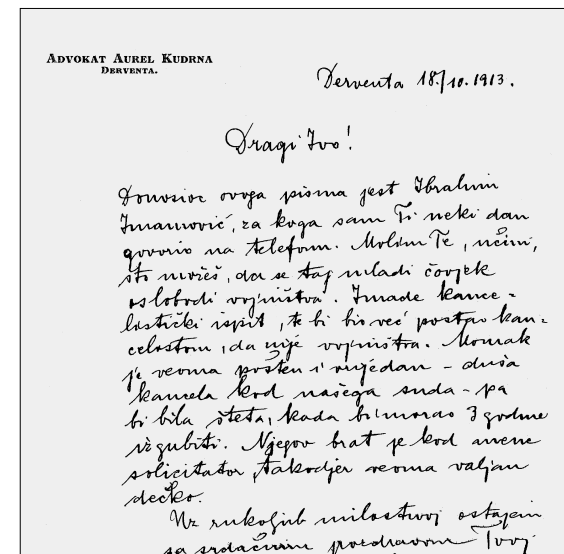 ADVOKAT AUREL KUDRNA
DERVENTA.
Derventa 18./10. 1913.
Dragi Ivo!
Donosioc ovoga pisma jest Ibrahim
Imamović, za koga sam Ti neki dan
govorio na telefom. Molim Te, učini,
što možeš, da se taj mladi čovjek
oslobodi vojništva. Imade kance-
listički ispit, te bi bio već postao kan-
celostom, da nije vojništva. Momak
je veoma pošten i vrijedan - duša
kancela kod našega suda - pa
bi bila šteta, kada bi morao 3 godine
izgubiti. Njegov brat je kod mene
solicitator, takodjer veoma valjan
dečko.
Uz rukoljub milostivoj ostajem
sa srdačnim pozdravom Tvoj